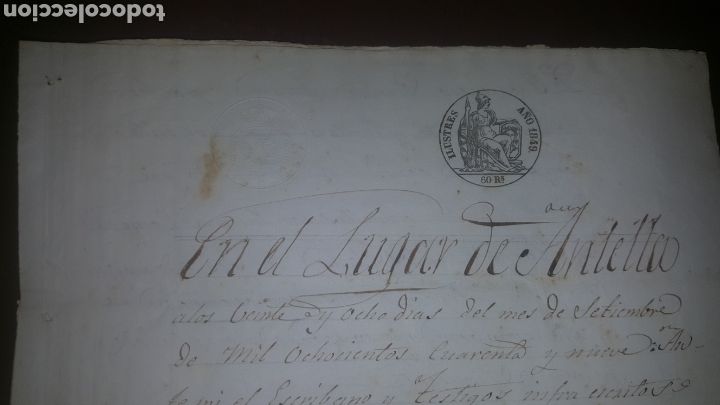 todocoleccion
ILUSTRES AÑO 1849.
60 Rs
En el Lugar de Antella
a los Veinte y Ocho dias del mes de Setiembre
de Mil Ochocientos Cuarenta y nueve: An-
te mi el Escribano y Testigos infra escritos